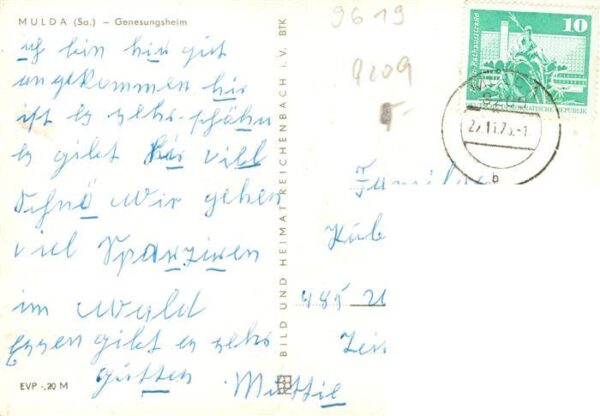 MULDA (Sa.) – Genesungsheim
ich bin hir gut
angekommen hir
ist es sehr schöhn
es gibt hir viell
Schnä wir gehen
viel Spaziren
im Wald
Essen gibt es sehr
gutten Muttie
EVP -,20 M
BILD UND HEIMAT REICHENBACH i. V. BfK
9619
9209
10
Rathausstraße
DEMOKRATISCHE REPUBLIK
Familie
485